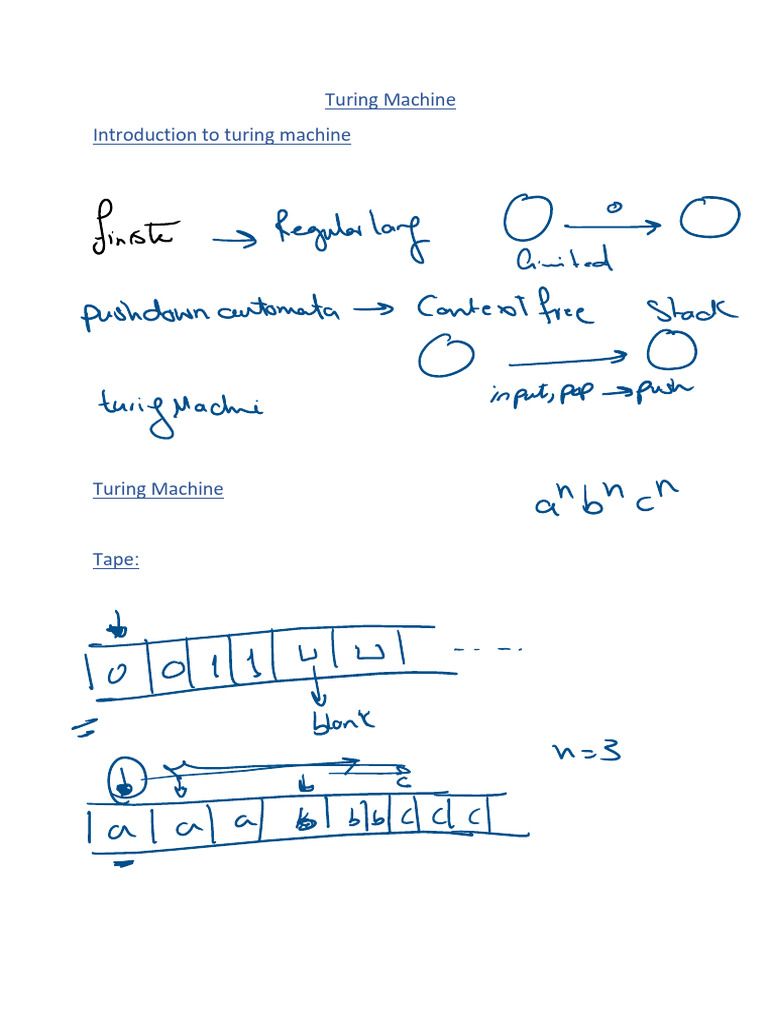 Turing Machine
Introduction to turing machine
finste → Regular lang 0
limited
pushdown automata → Context free Stack
input, pop → push
turig Machni
Turing Machine
aⁿ bⁿ cⁿ
Tape:
0 0 1 1 ⊔ ⊔ .....
blank
n=3
b c
a a a b b b c c c